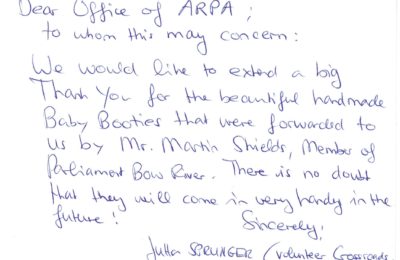 Dear Office of ARPA;
to whom this may concern:
We would like to extend a big
Thank You for the beautiful handmade
Baby Booties that were forwarded to
us by Mr. Martin Shields, Member of
Parliament Bow River. There is no doubt
that they will come in very handy in the
future! Sincerely,
Jutta SPRUNGER / Volunteer Crossroads